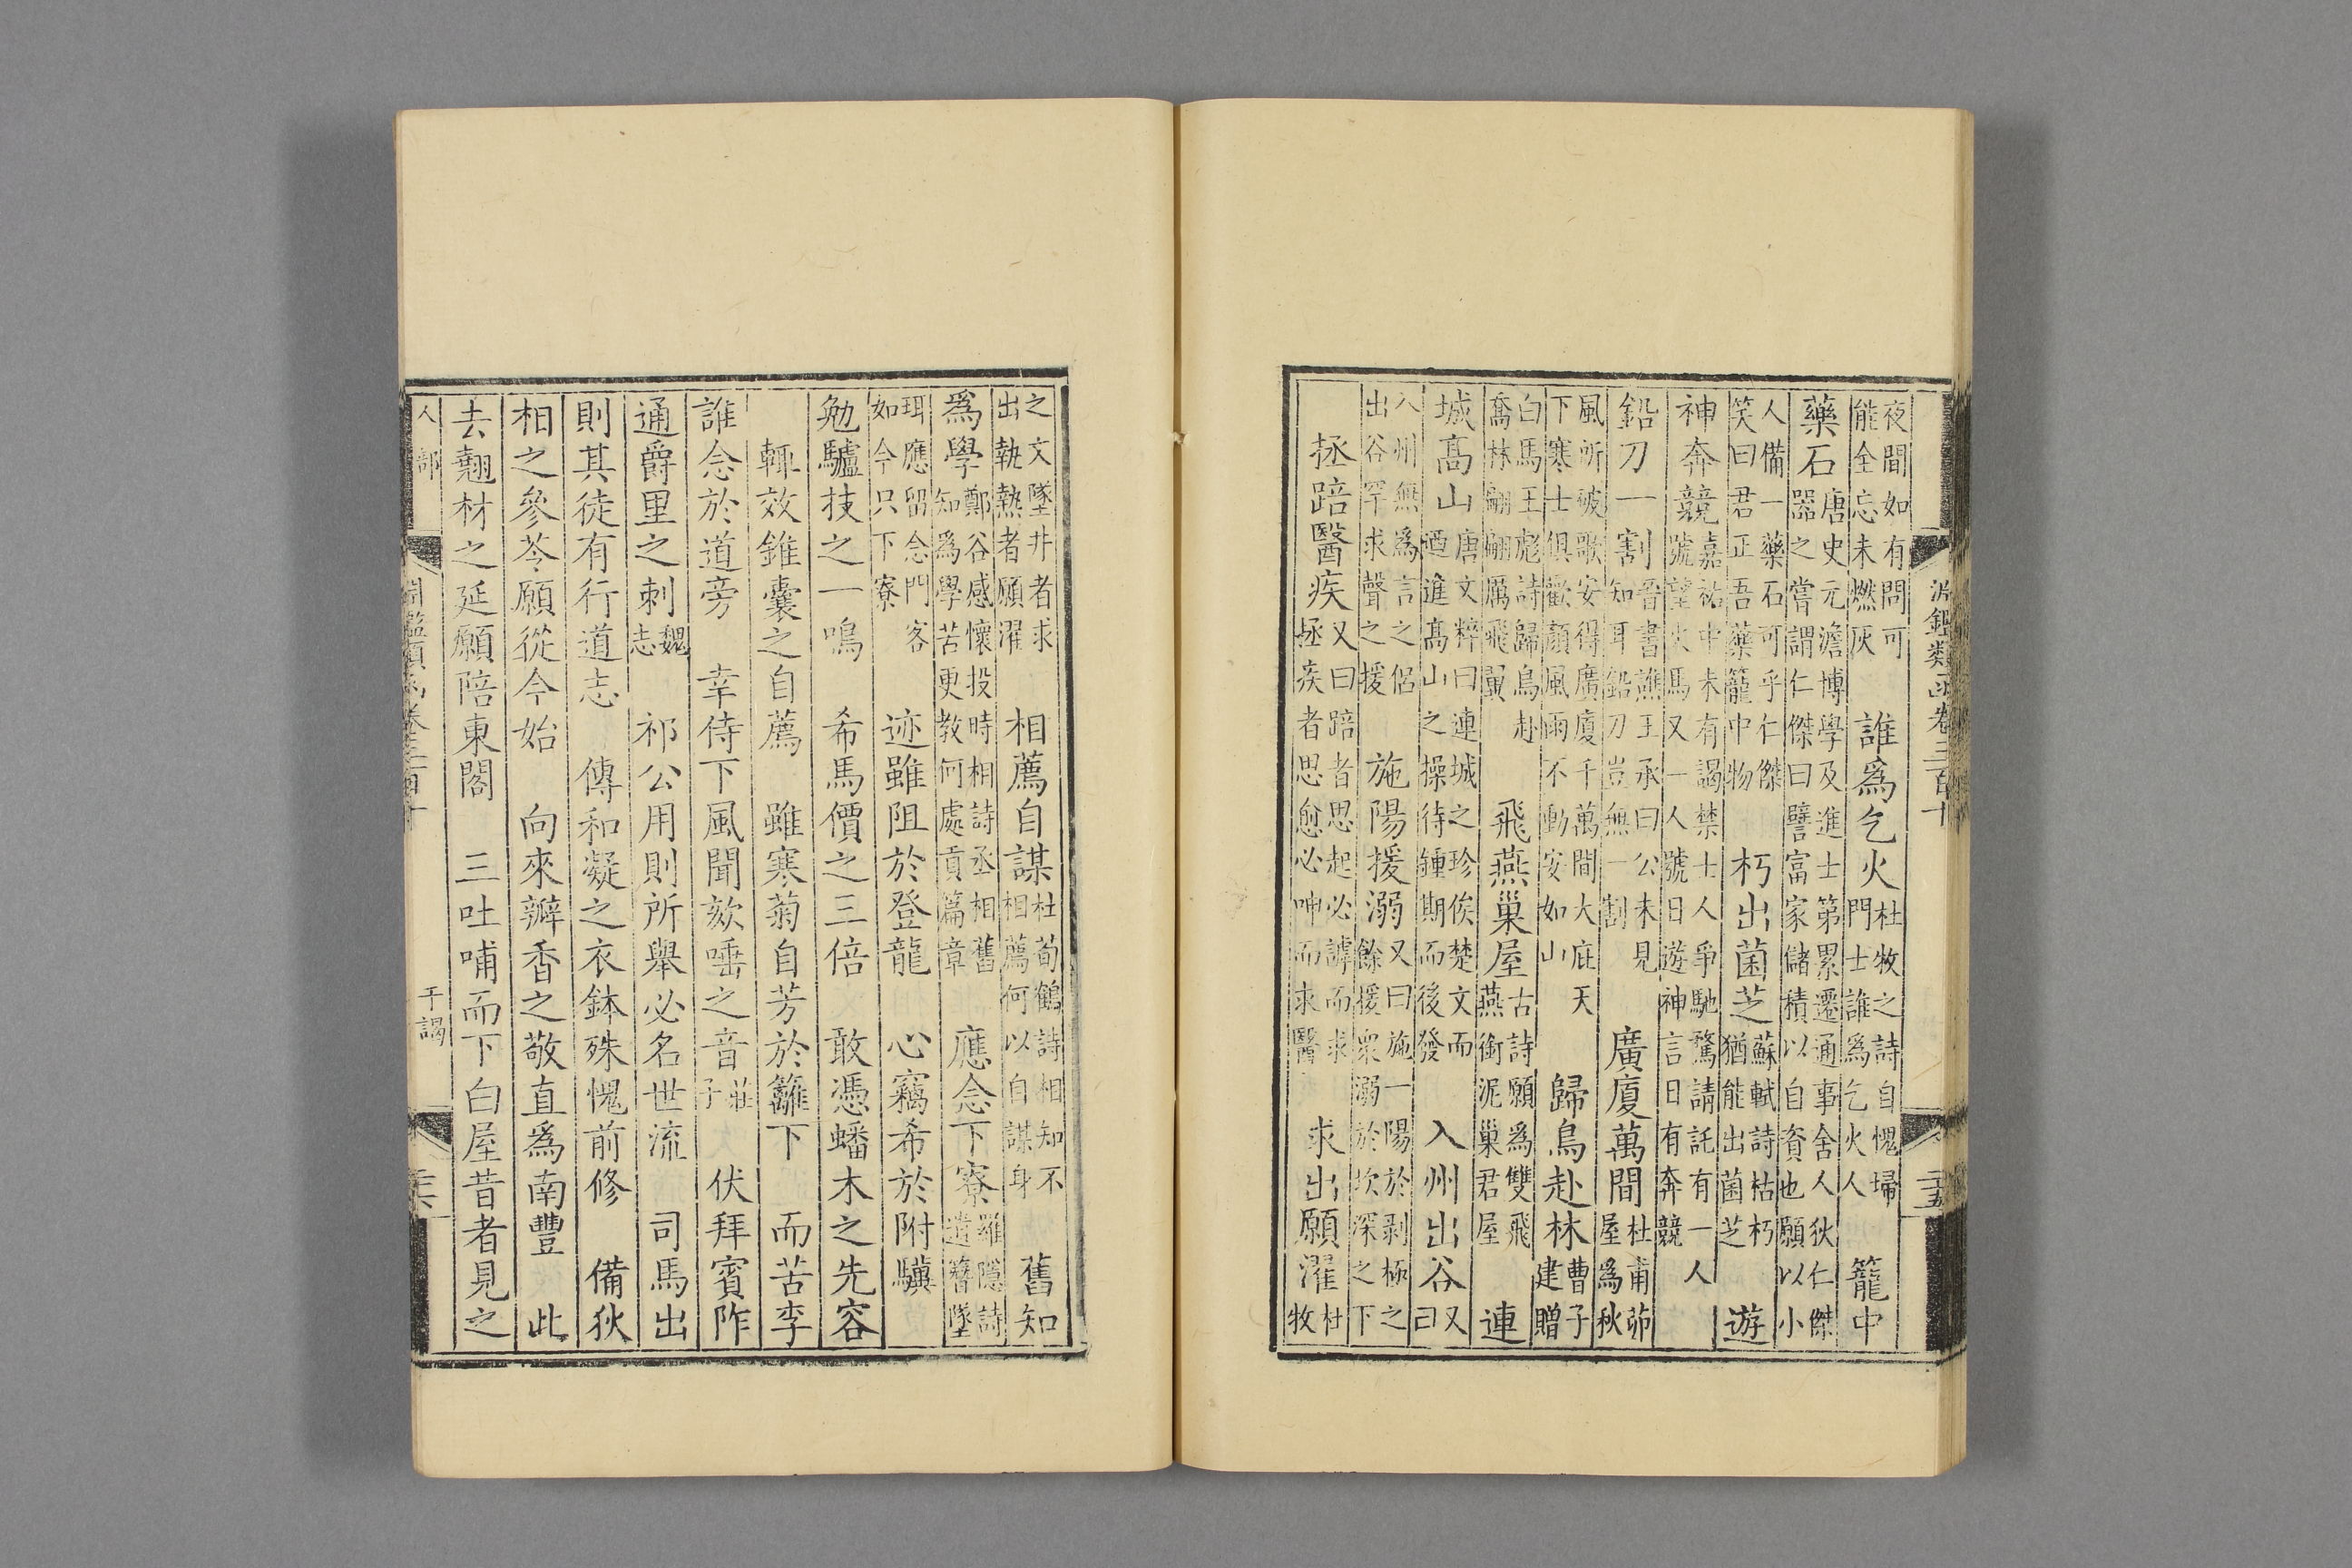 淵鑑類函卷三百十 二十五
夜間如有問可能全忘未燃灰 誰爲乞火 杜牧之詩自愧埽門士誰爲乞火人 籠中
藥石 唐史元澹博學及進士第累遷通事舍人狄仁傑器之嘗謂仁傑曰譬富家儲積以自資也願以小
人備一藥石可乎仁傑笑曰君正吾藥籠中物 朽出菌芝 蘇軾詩枯朽猶能出菌芝 遊
神奔競 嘉祐中未有謁禁士人爭馳騖請託有一人號望火馬又一人號日遊神言日有奔競
鉛刀一割 晉書譙王承曰公未見知耳鉛刀豈無一割 廣廈萬間 杜甫茆屋爲秋
風所破歌安得廣廈千萬間大庇天下寒士俱歡顏風雨不動安如山 歸鳥赴林 曹子建贈
白馬王彪詩歸鳥赴喬林翩翩厲飛翼 飛燕巢屋 古詩願爲雙飛燕銜泥巢君屋 連
城高山 唐文粹曰連城之珍俟楚文而廼進高山之操待鍾期而後發 入州出谷 又曰
入州無爲言之侶出谷罕求聲之援 施陽援溺 又曰施一陽於剥極之餘援衆溺於坎深之下
拯踣醫疾 又曰踣者思起必謼而求拯疾者思愈必呻而求醫 求出願濯 杜牧
之文墜井者求出執熱者願濯 相薦自謀 杜荀鶴詩相知不相薦何以自謀身 舊知
爲學 鄭谷感懷投時相詩丞相舊知爲學苦更教何處貢篇章 應念下寮 羅隱詩遺簪墜
珥應留念門客如今只下寮 迹雖阻於登龍 心竊希於附驥
勉驢技之一鳴 希馬價之三倍 敢憑蟠木之先容
輒效錐囊之自薦 雖寒菊自芳於籬下 而苦李
誰念於道旁 幸侍下風聞欬唾之音 莊子 伏拜賓阼
通爵里之刺 魏志 祁公用則所舉必名世流 司馬出
則其徒有行道志 傳和凝之衣鉢殊愧前修 備狄
相之參苓願從今始 向來瓣香之敬直爲南豐 此
去翹材之延願陪東閣 三吐哺而下白屋昔者見之
人部 淵鑑類函卷三百十 干謁 二十六